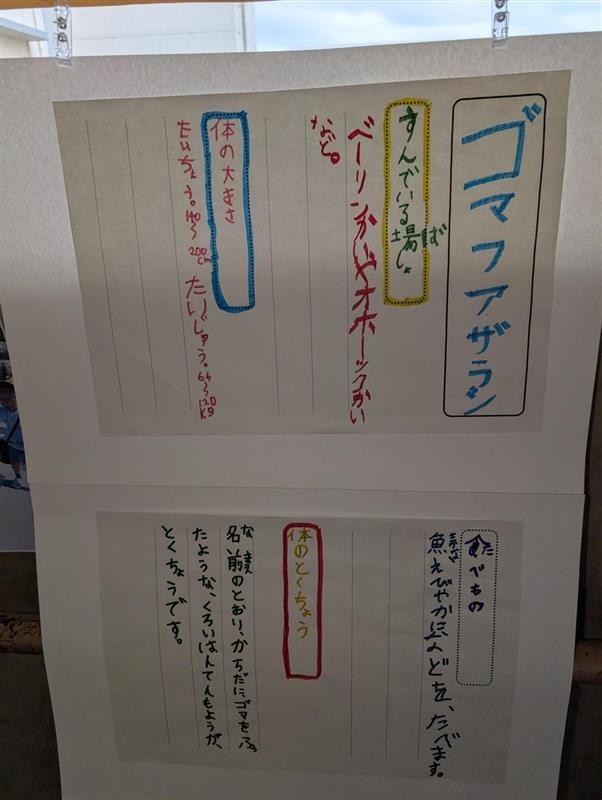 ゴマフアザラシ
すんでいる場しょ
ば
ベーリンかいやオホーツクかい
など。
体の大きさ
たいちょう。140〜200cm たいじゅう。64〜120kg
食べもの
た
魚えびやかになどを、たべます。
さかな
体のとくちょう
名前のとおり、からだに、ゴマをふっ
な まえ
たような、くろいはんてんもようが、
とくちょうです。